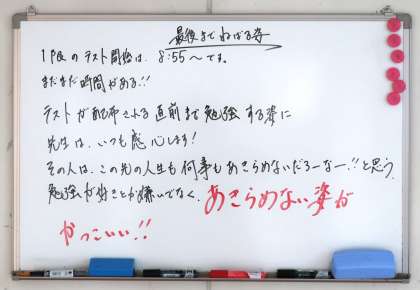 最後までねばる姿
1限のテスト開始は、8:55〜です。
まだまだ時間がある!!
テストが配布される直前まで勉強する姿に
先生は、いつも感心します!
その人は、この先の人生も何事もあきらめないだろーなー!!と思う。
勉強が好きとか嫌いでなく、あきらめない姿が
かっこいい!!